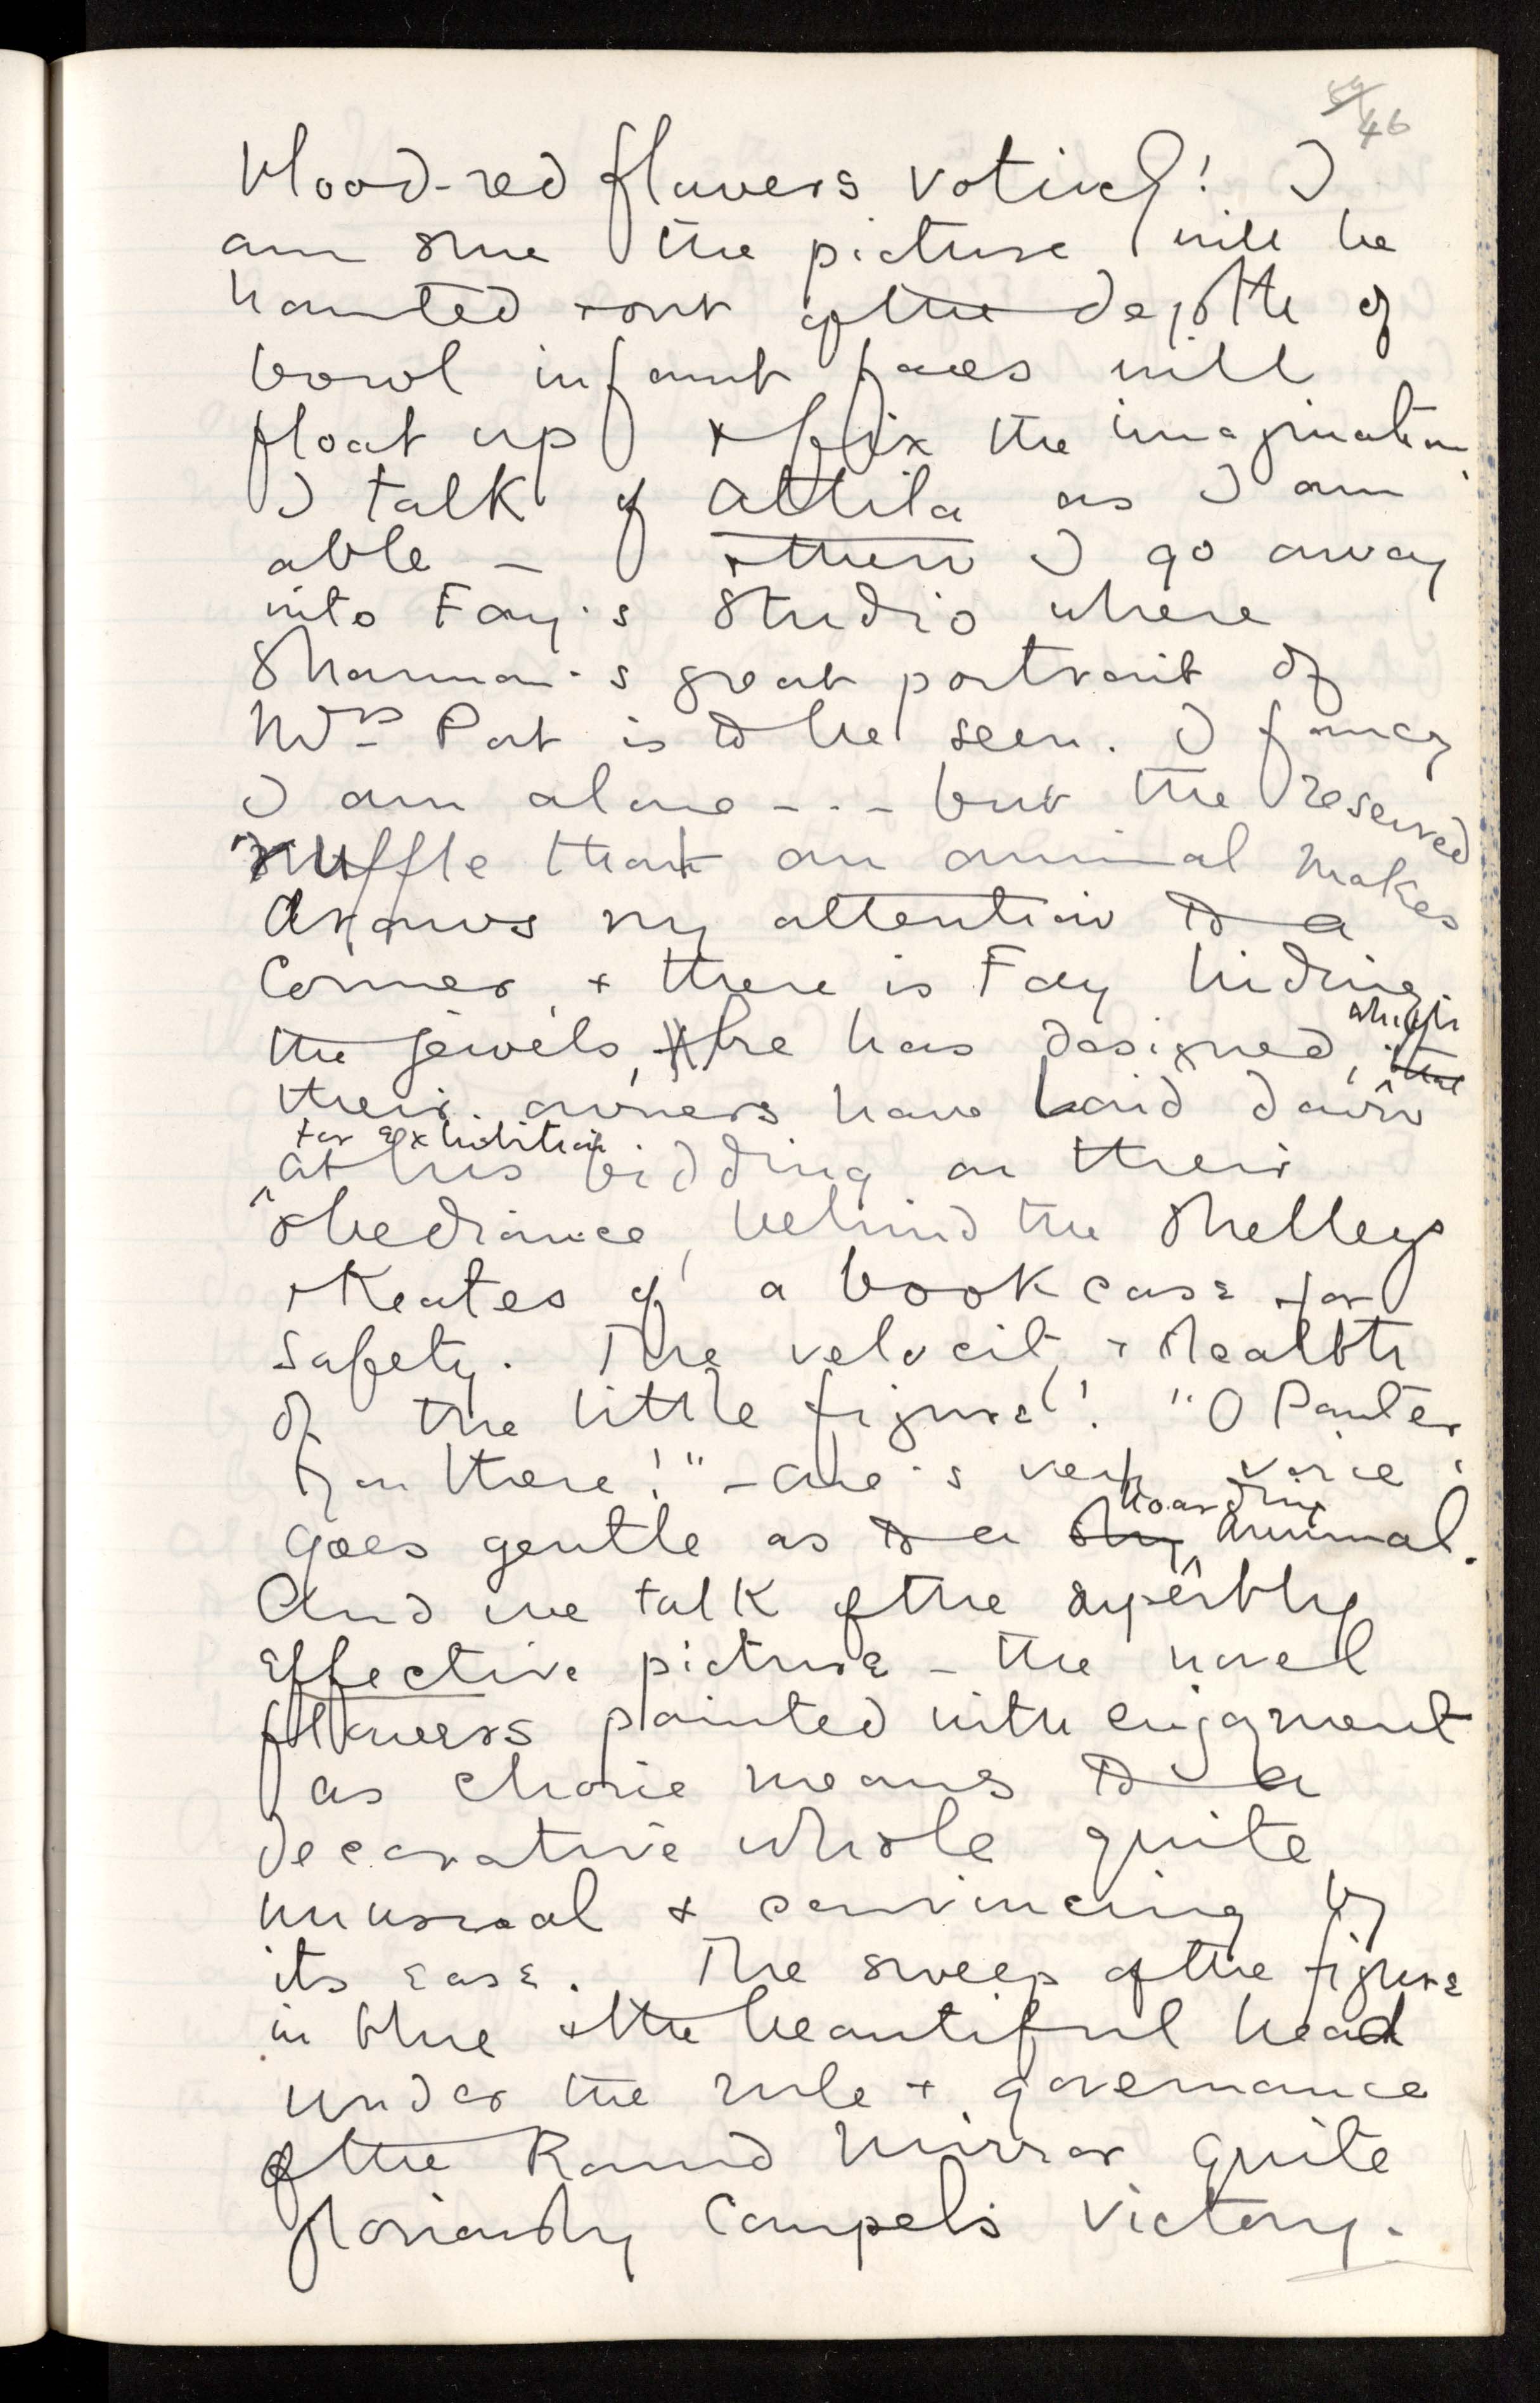 46
blood-red flowers votive! I
am sure the picture will be
haunted & out of the depth of
bowl infant faces will
float up & fix the imagination.
I talk of Attila as I am
able — & then I go away
into Fay's Studio where
Shannon's great portrait of
Mrs Pat is to be seen. I fancy
I am alone - - - but the reserved
ruffle that an animal makes
draws my attention to a
Corner, & there is Fay hiding
the jewels, he has designed, which
that
their owners have laid down
for exhibition
at his bidding on their
obedience, behind the Shelleys
& Keates of a bookcase for
safety. The velocity & stealth
of the little figure! "O Painter
you there!" — one's very voice
hoarding
goes gentle as to a shy animal.
And we talk of the superbly
effective picture — the novel
flowers painted with enjoyment
as choric means to a
decorative whole quite
unusual & convincing by
its ease. The sweep of the figure
in blue & the beautiful head
under the rule & governance
of the Round Mirror quite
gloriously Compels Victory.